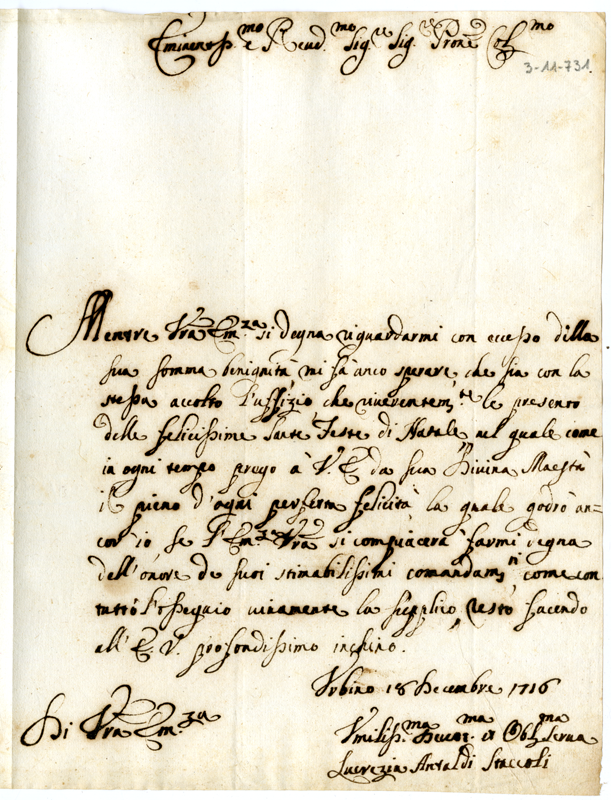 Eminentiss.mo e Reud.mo Sig.re Sig. Prone Col.mo
3-11-731.
Mentre Vra Em.za si degna riguardarmi con eccesso della
sua somma benignità mi fà anco sperare che sia con la
stessa accolto l'uffizio che riverentem.te le presento
delle felicissime Sante Feste di Natale, nel quale come
in ogni tempo prego à V. E. da sua Divina Maestà
il pieno d'ogni perfetta felicità la quale godrò an=
cor' io se l'Em.za Vra si compiacerà farmi degna
dell'onore de suoi stimabilissimi comandam.ti come con
tutto l'ossequio vivamente la supplico, e resto facendo
all'E. V. profondissimo inchino.
Urbino 18 Decembre 1716
Di Vra Em.za
Umiliss.ma Devot.ma et Obl.ma Serua
Lucrezia Antaldi Staccoli